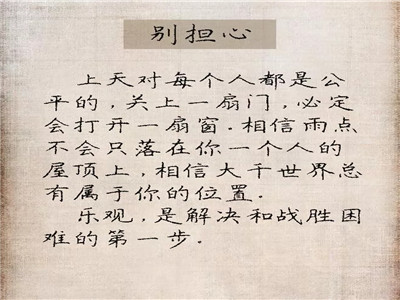 别担心
上天对每个人都是公
平的,关上一扇门,必定
会打开一扇窗.相信雨点
不会只落在你一个人的
屋顶上,相信大千世界总
有属于你的位置.
乐观,是解决和战胜困
难的第一步.